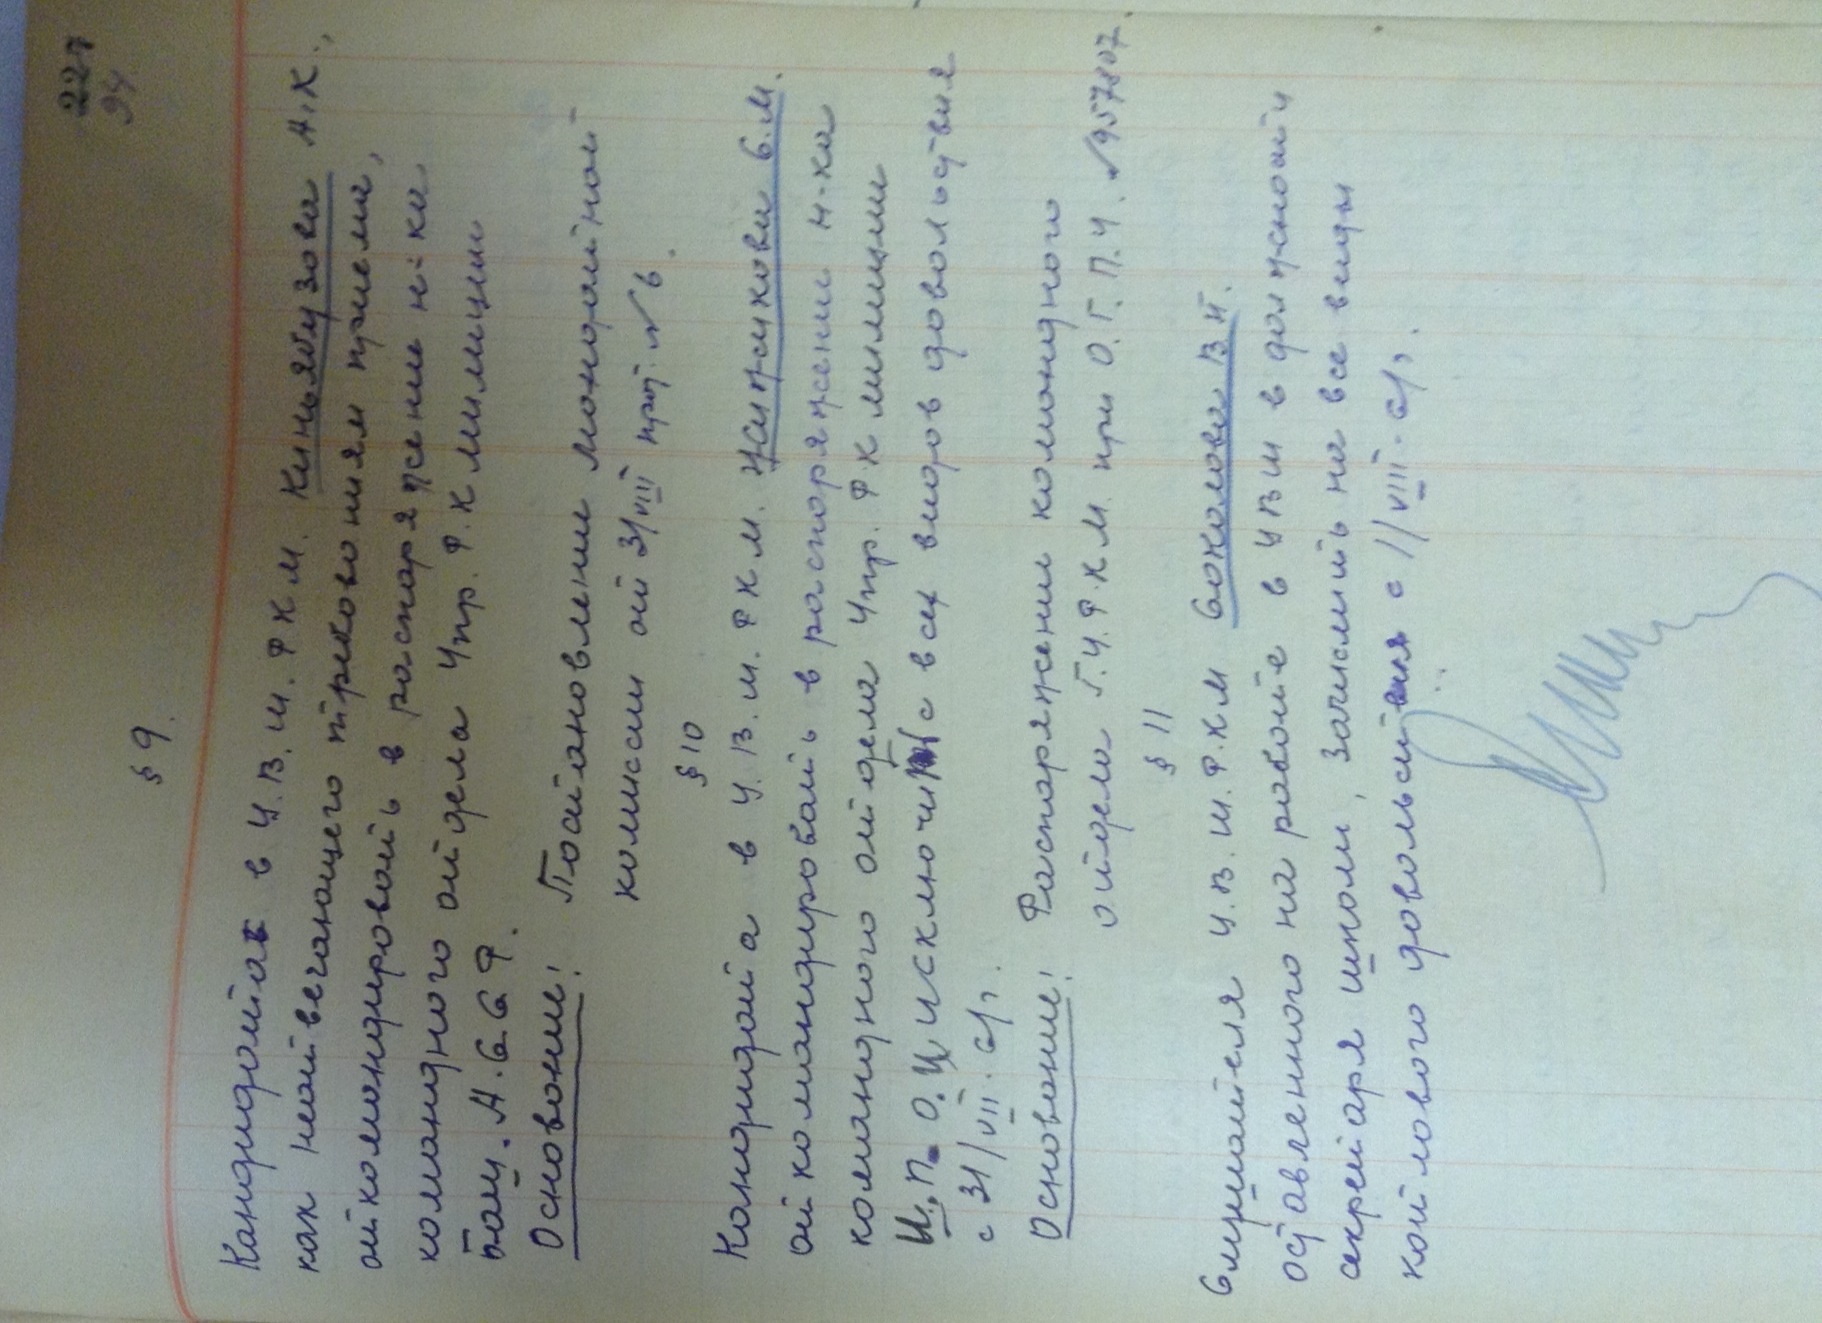 227
94
§ 9.
Кандидата в У.В.Ш.Р.К.М. Киньябузова А.К.,
как неотвечающего требованиям приема,
откомандировать в распоряжение н-ка
командного отдела Упр. Р.К милиции
Баш. А.С.С.Р.
Основание! Постановление мандатной
комиссии от 31/VIII прот. № 6.
§ 10
Кандидата в У.В.Ш.Р.К.М. С.М.
откомандировать в распоряжении н-ка
командного отдела Упр. Р.К милиции
И.П.О. и исключить с всех видов удовольствия
с 31/VII. с/г.
Основание! Распоряжении командного
отдела Г.У.Р.К.М. при О.Г.П.У. № 957807.
§ 11
Слушателя У.В.Ш.Р.К.М Соколова В.И.
оставленного на работе в УВШ в должности
секретаря школы, зачислить на все виды
котлового удовольствия с 1/VIII. с/г.